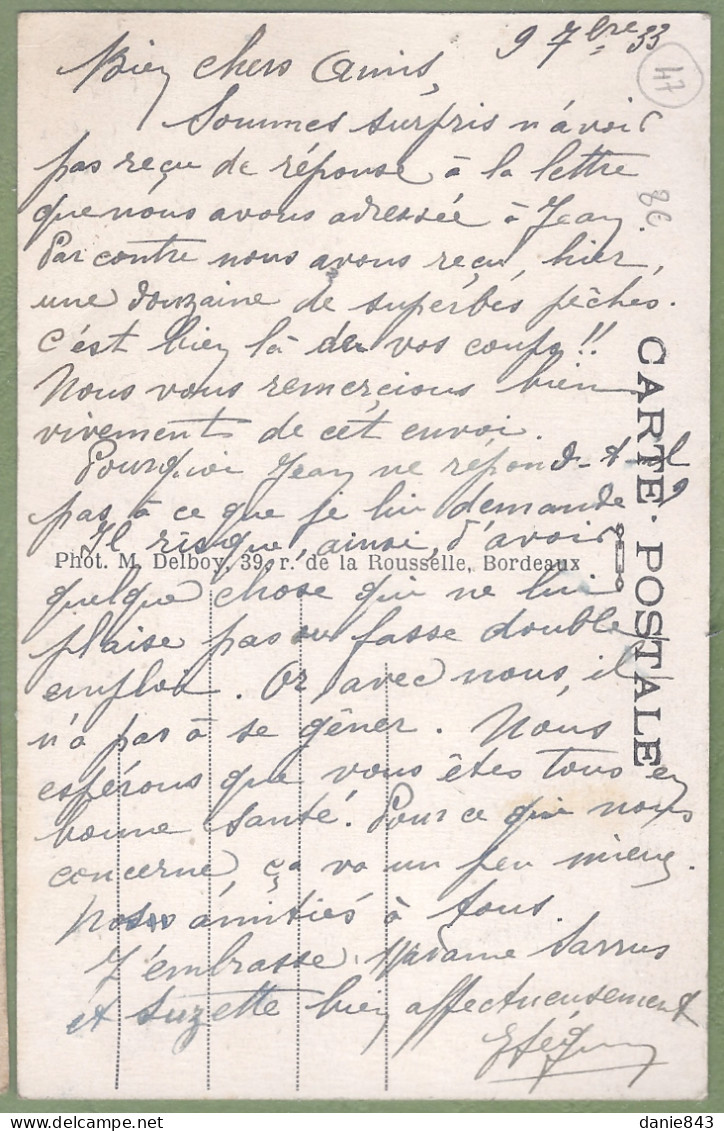 9 7bre 33
47
Bien chers Amis,
Sommes surpris n'avoir
pas reçu de réponse à la lettre
que nous avons adressée à Jean.
8€
Par contre nous avons reçu, hier,
une douzaine de superbes pêches.
C'est bien là de vos coups!!
Nous vous remercions bien
vivements de cet envoi.
Pourquoi Jean ne répond-t-il
pas à ce que je lui demande
Il risque, ainsi, d'avoir
Phot. M. Delboy, 39, r. de la Rousselle, Bordeaux
quelque chose qui ne lui
plaise pas ou fasse double
emploi. Or avec nous, il
n'a pas à se gêner. Nous
espérons que vous êtes tous en
bonne santé. Pour ce qui nous
concerne ça va un peu mieux.
Nos amitiés à tous.
J'embrasse Madame Sarrus
et Suzette bien affectueusement
CARTE POSTALE
danie843